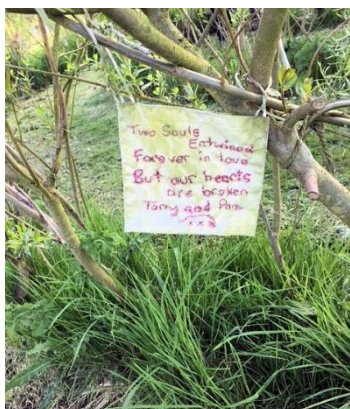 Two Souls
Entwined
Forever in love
But our hearts
are broken
Tony and Pam
xxx